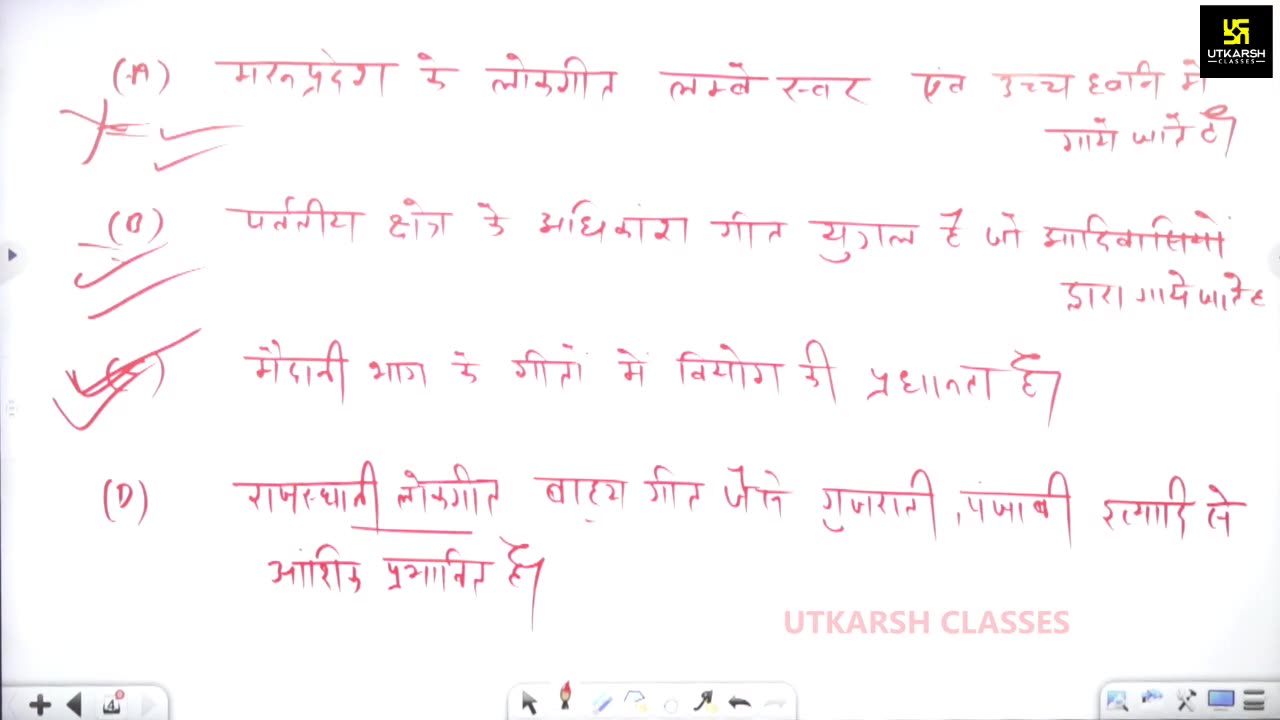 UTKARSH
CLASSES
(A) मरुप्रदेश के लोकगीत लम्बे स्वर एवं उच्च ध्वनि में
गाये जाते है।
(B) पर्वतीय क्षेत्र के अधिकांश गीत युगल है जो आदिवासियों
द्वारा गाये जाते है
मैदानी भाग के गीतों में वियोग की प्रधानता है।
(D) राजस्थानी लोकगीत बाह्य गीत जैसे गुजराती, पंजाबी इत्यादि से
आंशिक प्रभावित है।
UTKARSH CLASSES
4